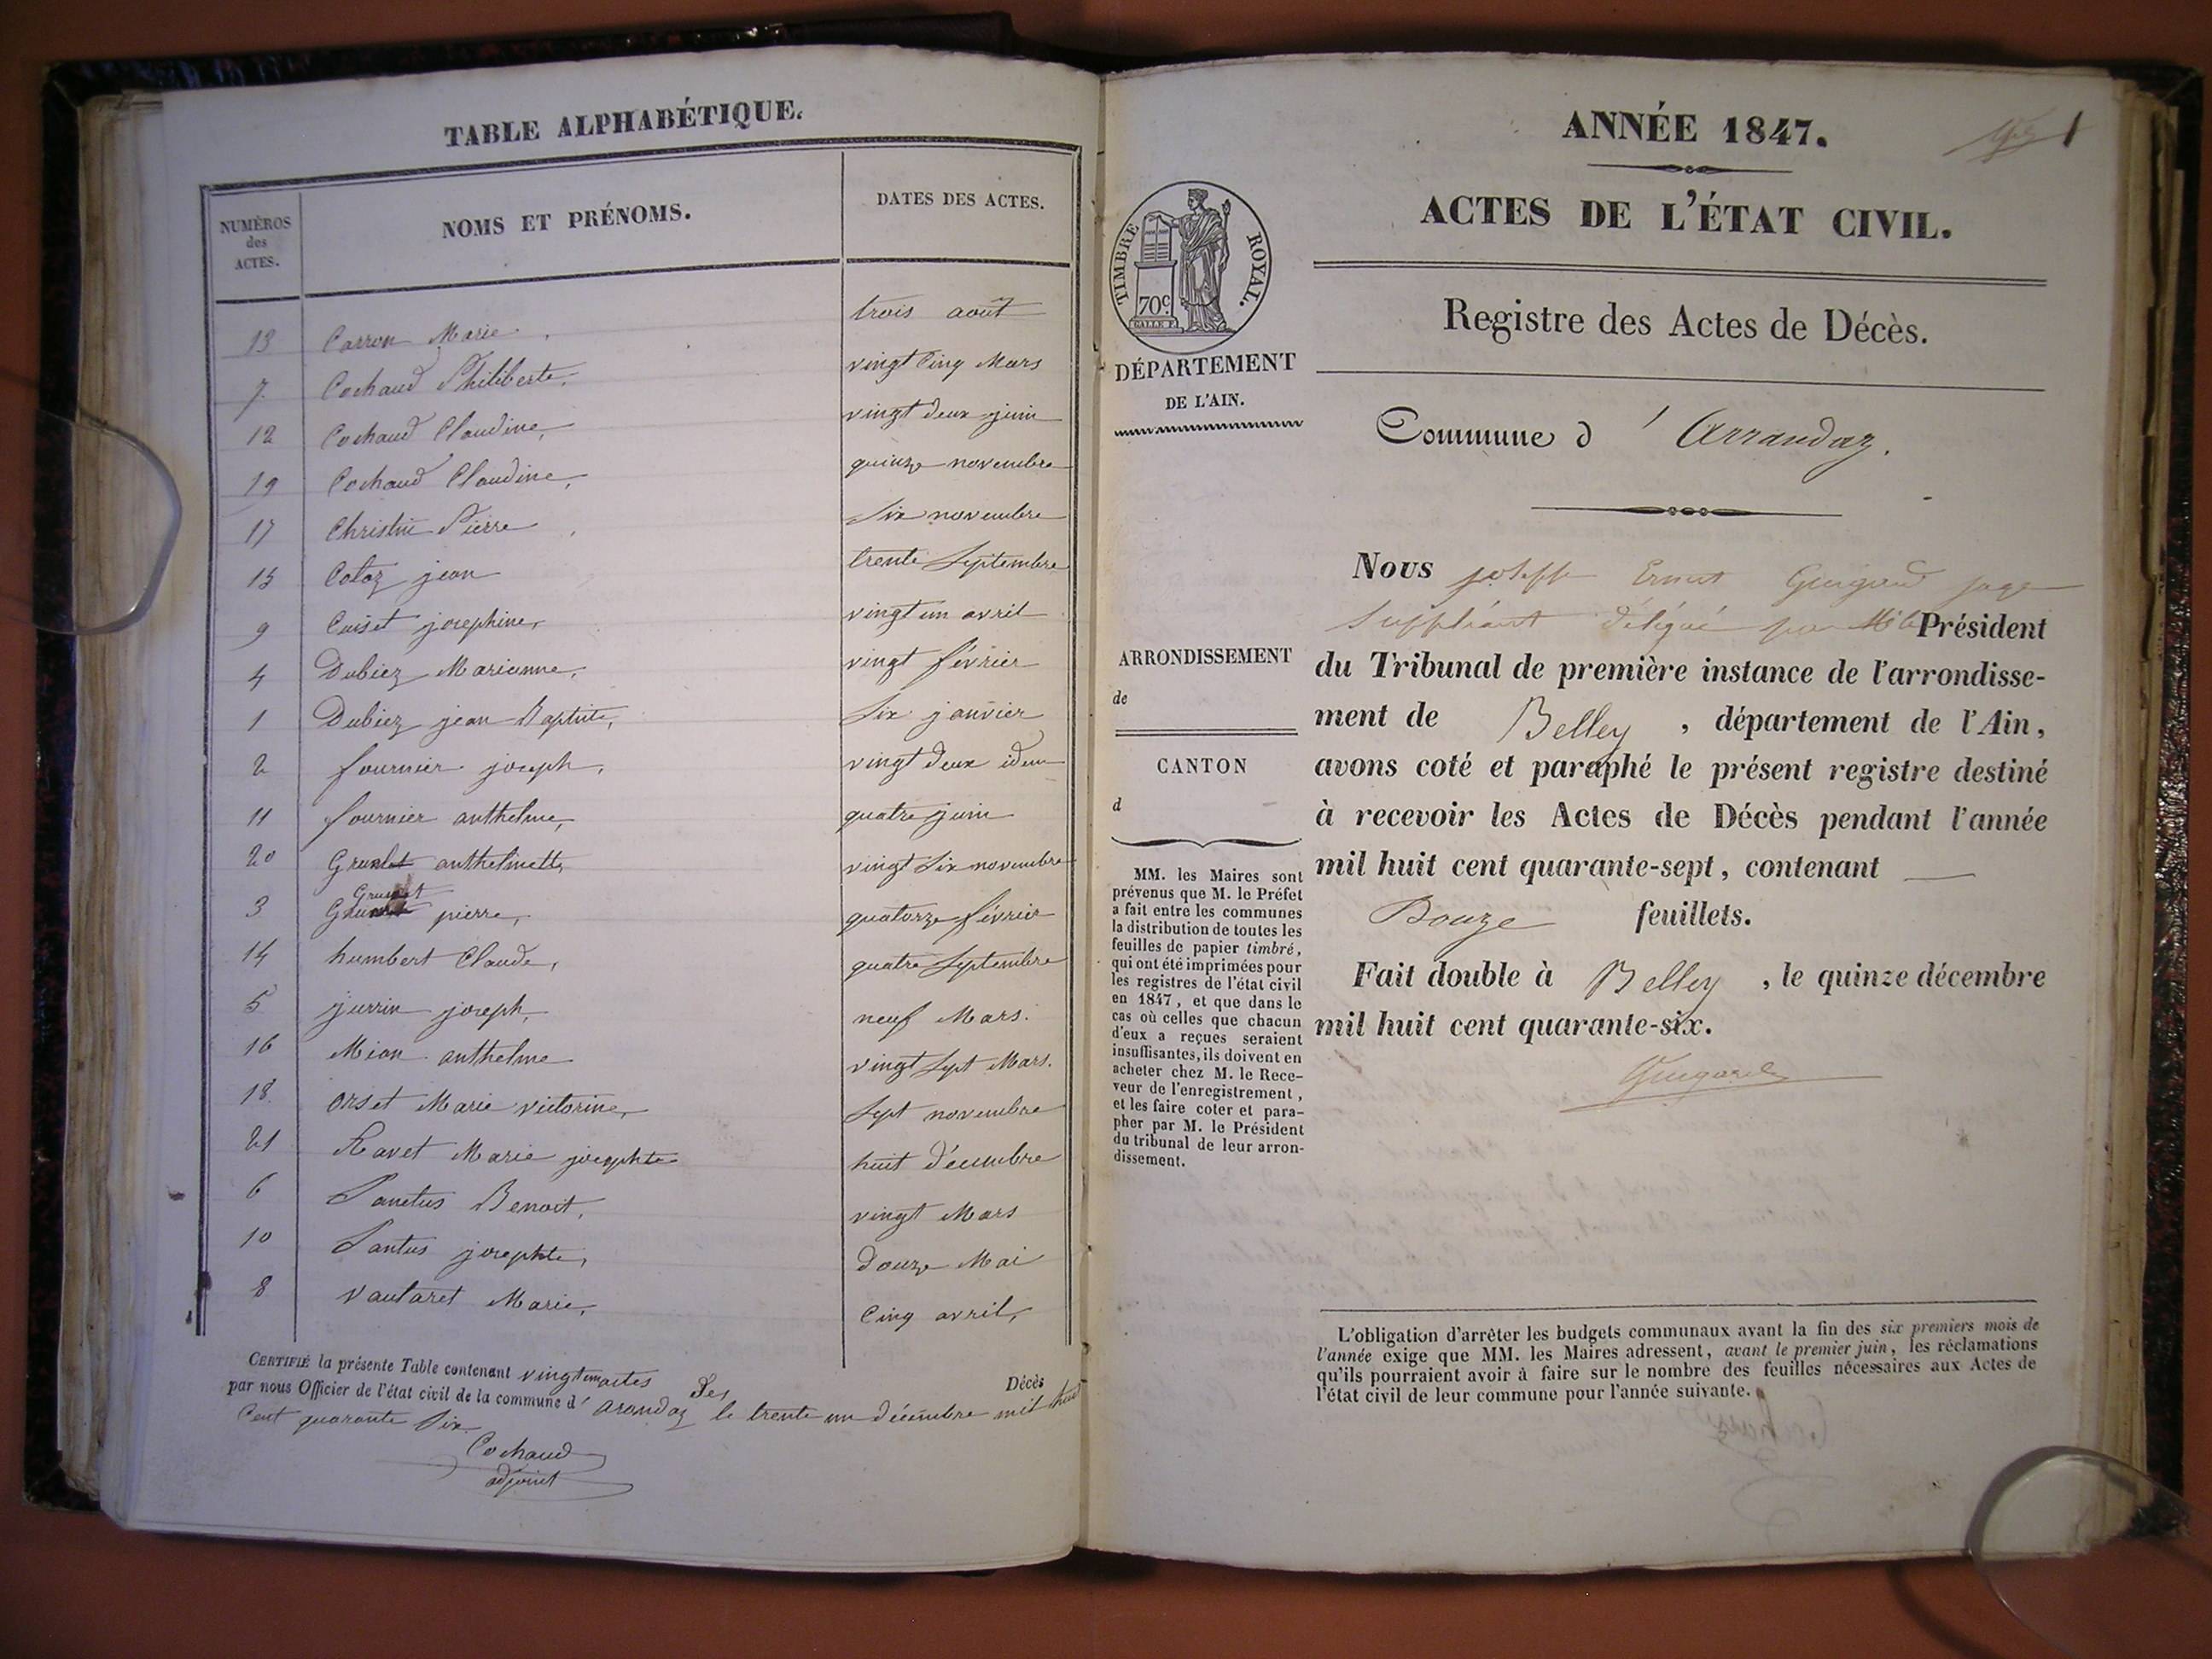 TABLE ALPHABÉTIQUE.
NUMÉROS des ACTES. NOMS ET PRÉNOMS. DATES DES ACTES.
13 Carron Marie trois août
7. Cochaud Philiberte, vingt Cinq Mars
12 Cochaud Claudine, vingt deux juin
19 Cochaud Claudine, quinze novembre
17 Christin Pierre Six novembre
15 Cotaz jean trente Septembre
9 Cuiset josephine, vingt un avril
4 Dubiez Marianne, vingt février
1 Dubiez jean Baptiste, Six janvier
2 fournier joseph, vingt deux idem
11 fournier anthelme, quatre juin
20 anthelmette vingt Six novembre
3 Grumet pierre, quatorze février
14 humbert Claude, quatre Septembre
5 jurrin joseph, neuf Mars.
16 Mian anthelme vingt Sept Mars.
18. Orset Marie victorine, Sept novembre
21 Ravet Marie josephte huit décembre
6 Sanctus Benoit, vingt Mars
10 Santus josephte, douze Mai
8 Vautaret Marie, Cinq avril,
CERTIFIÉ la présente Table contenant vingt un actes des Décès
par nous Officier de l'état civil de la commune d' arandaz le trente un décembre mil huit
Cent quarante Six
Cochaud
adjoint
ANNÉE 1847.
1
ACTES DE L'ÉTAT CIVIL.
Registre des Actes de Décès.
Commune d' Arrandaz.
TIMBRE ROYAL.
70c.
DÉPARTEMENT
DE L'AIN.
ARRONDISSEMENT
de
CANTON
d
MM. les Maires sont
prévenus que M. le Préfet
a fait entre les communes
la distribution de toutes les
feuilles de papier timbré,
qui ont été imprimées pour
les registres de l'état civil
en 1847, et que dans le
cas où celles que chacun
d'eux a reçues seraient
insuffisantes, ils doivent en
acheter chez M. le Rece-
veur de l'enregistrement,
et les faire coter et para-
pher par M. le Président
du tribunal de leur arron-
dissement.
Nous joseph Ernest Guigard juge
Suppléant délégué par Mr le Président
du Tribunal de première instance de l'arrondisse-
ment de Belley, département de l'Ain,
avons coté et paraphé le présent registre destiné
à recevoir les Actes de Décès pendant l'année
mil huit cent quarante-sept, contenant
Douze feuillets.
Fait double à Belley, le quinze décembre
mil huit cent quarante-six.
Guigard
L'obligation d'arrêter les budgets communaux avant la fin des six premiers mois de
l'année exige que MM. les Maires adressent, avant le premier juin, les réclamations
qu'ils pourraient avoir à faire sur le nombre des feuilles nécessaires aux Actes de
l'état civil de leur commune pour l'année suivante.